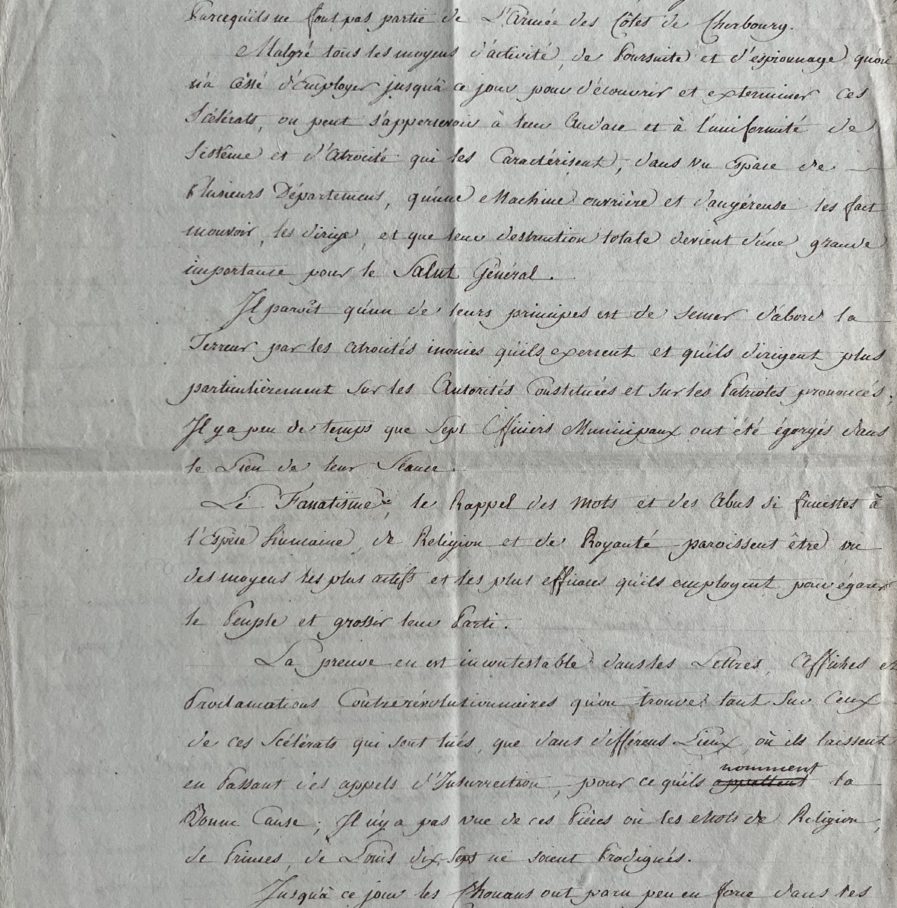 Parcequ'ils ne font pas partie de L'Armée des Côtes de Cherbourg.
Malgré tous les moyens d'activité, de Poursuite et d'espionnage qu'on
n'a cessé d'Employer jusqu'à ce jour pour découvrir et exterminer ces
Scélérats, on peut s'appercevoir à leur Audace et à l'uniformité de
Sistême et d'Atrocité qui les Caractérisent, dans un Espace de
Plusieurs Départements, qu'une Machine ouvrière et dangéreuse les fait
mouvoir, les dirige, et que leur destruction totale devient d'une grande
importance pour le Salut Général.
Il paroît qu'un de leurs principes est de semer d'abord la
Terreur par les atrocités inouies qu'ils exercent et qu'ils dirigent plus
particulièrement sur les Autorités Constituées et sur les Patriotes prononcés;
Il y a peu de temps que Sept Officiers Municipaux ont été égorgés dans
le Lieu de leur Séance.
Le Fanatisme, le Rappel des Mots et des Abus si funestes à
l'Espèce humaine, de Religion et de Royauté paroissent être un
des moyens les plus actifs et les plus efficaces qu'ils employent pour égarer
le Peuple et grossir leur Parti.
La preuve en est incontestable dans les Lettres, Affiches et
Proclamations Contrerévolutionnaires qu'on trouve tant sur Ceux
de ces Scélérats qui sont tués, que dans différens Lieux où ils laissent
en Passant des appels d'Insurrection, pour ce qu'ils appellent nomment la
Bonne Cause; Il n'y a pas une de ces Pièces où les Mots de Religion,
de Princes, de Louis dix-Sept ne soient Prodigués.
Jusqu'à ce jour les Chouans ont paru peu en force dans les